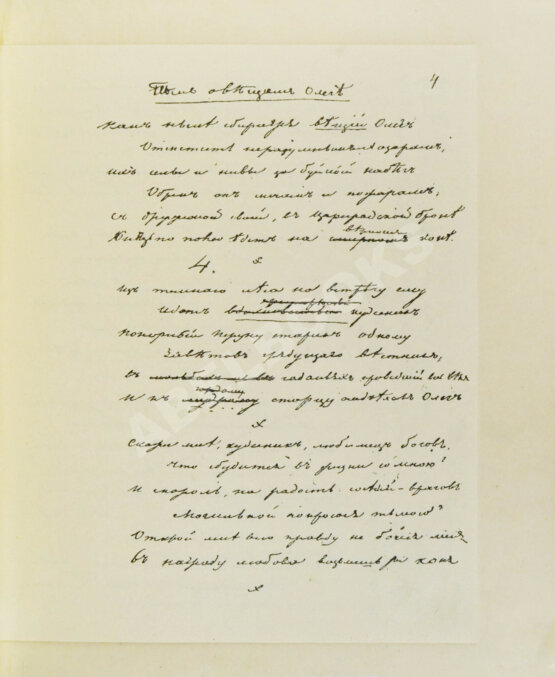 4
Пѣснь о вѣщемъ Олегѣ
Какъ нынѣ сбирается вѣщій Олегъ
Отмстить неразумнымъ Хозарамъ;
Ихъ селы и нивы за буйной набѣгъ
Обрекъ онъ мечамъ и пожарамъ;
съ дружиной своей, въ цареградской бронѣ
Князь по полю ѣдетъ на вѣрномъ конѣ.
4.
Изъ темнаго лѣса на встрѣчу ему
Идетъ вдохновенный кудесникъ
Покорный Перуну старикъ одному
Завѣтовъ грядущаго вѣстникъ,
въ гаданьяхъ проведшій весь вѣкъ
И къ мудрому старцу подъѣхалъ Олегъ
Скажи мнѣ, кудесникъ, любимецъ боговъ,
Что сбудется въ жизни со мною?
И скороль, на радость сосѣдей-враговъ
Могильной покроюсь землею?
Открой мнѣ всю правду не бойся меня
въ награду любова возьмешь коня
ABABOOKS